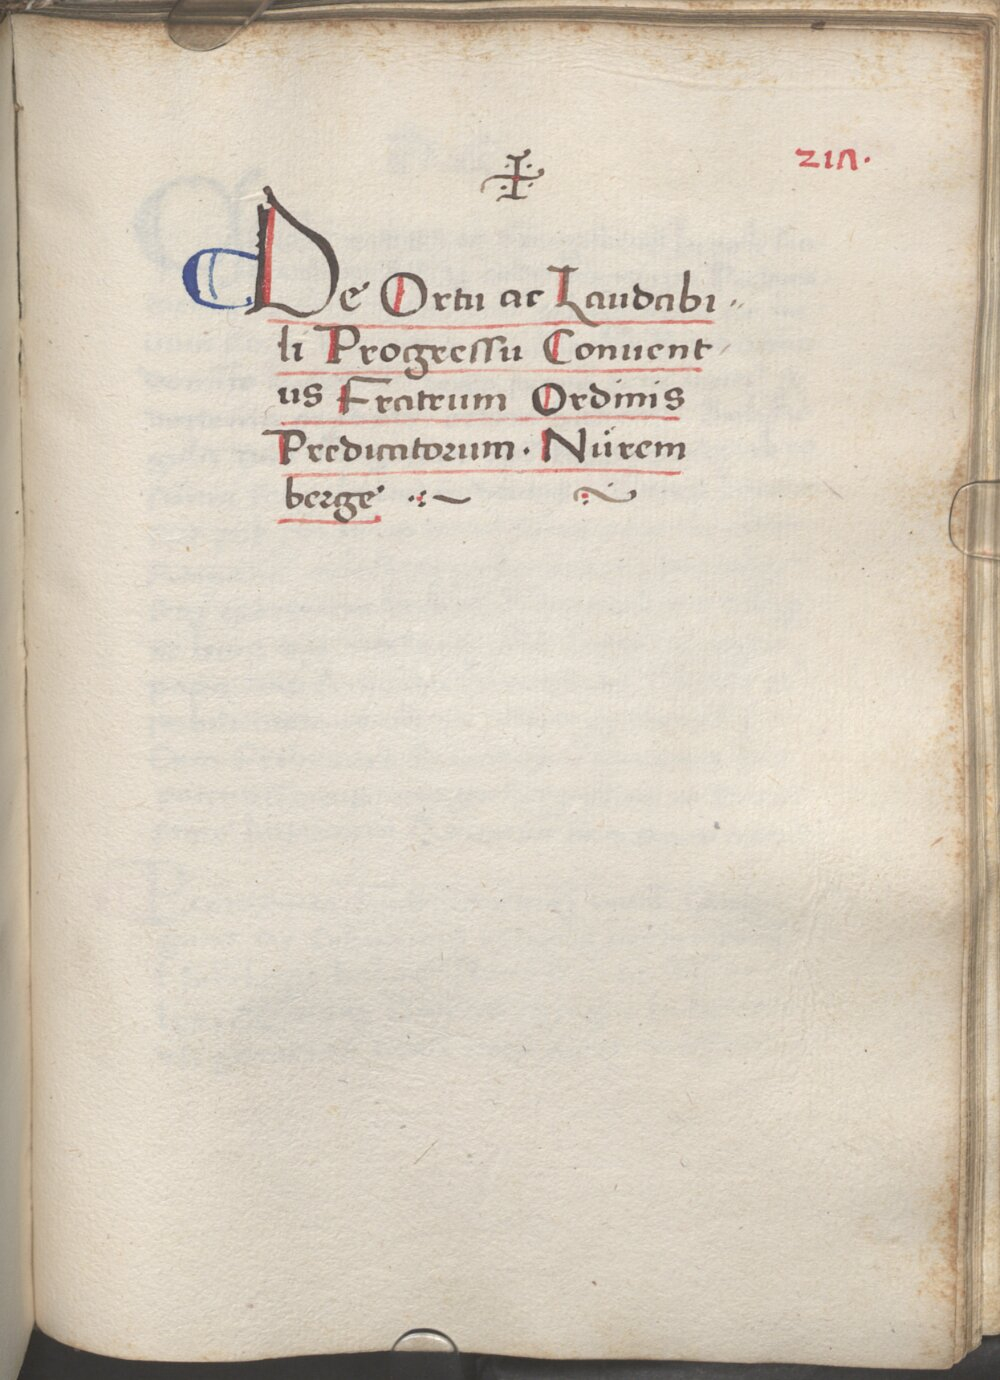 217.
De Ortu ac Laudabi-
li Progressu Conuent-
us Fratrum Ordinis
Predicatorum. Nürem
berge